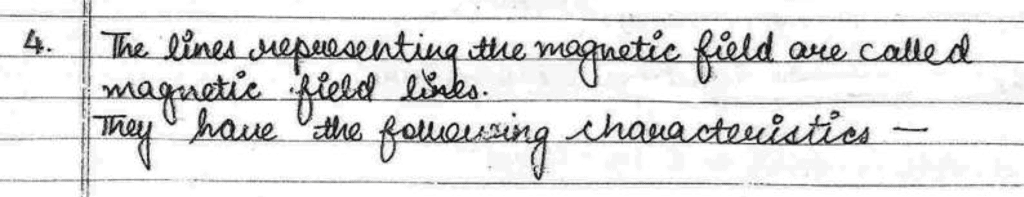 4. The lines representing the magnetic field are called
magnetic field lines.
They have the following characteristics —